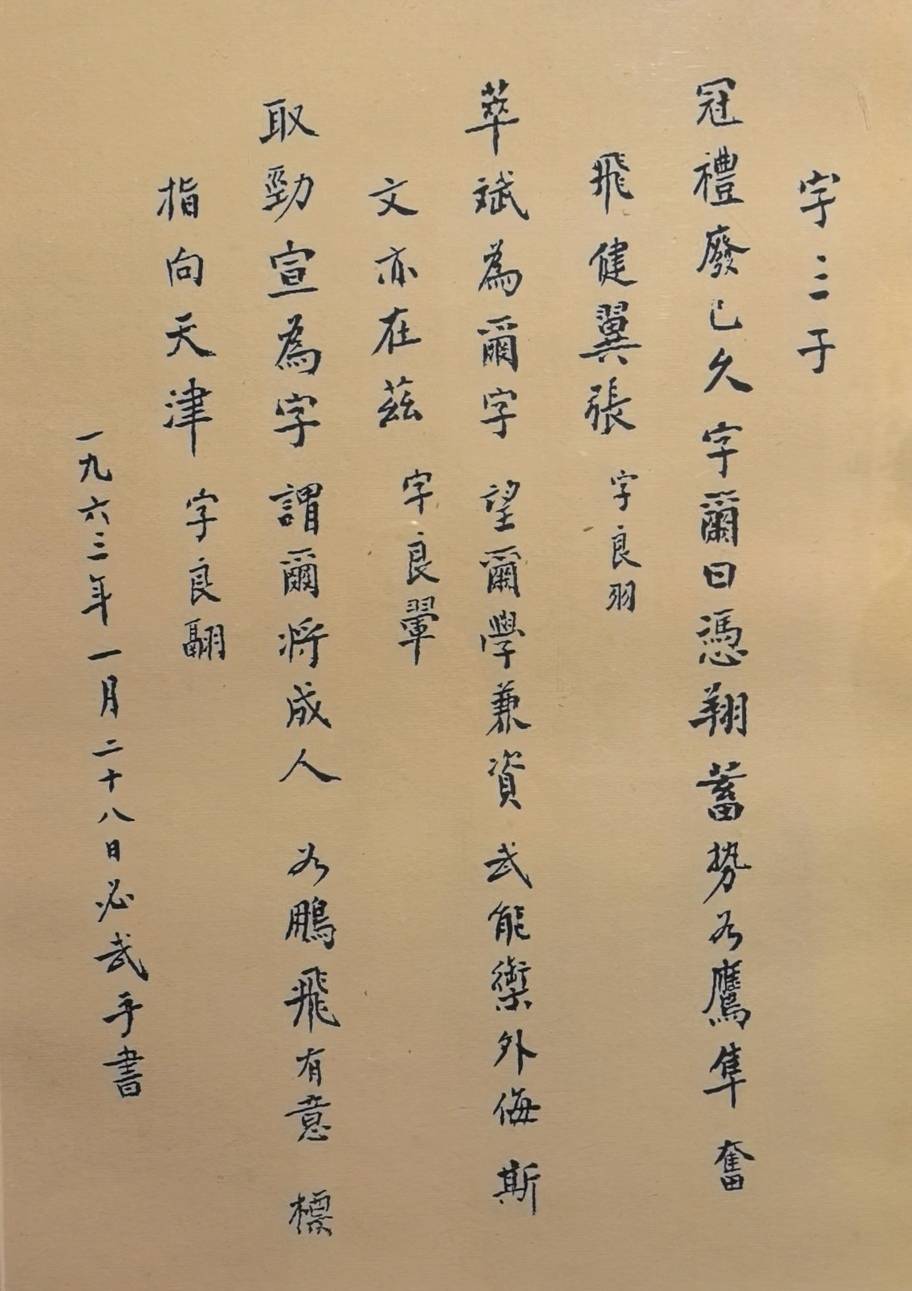 字三子
冠禮廢已久字爾曰憑翔蓄势为鷹隼奮
飛健翼張 字良羽
萃斌為爾字望爾學兼資武能禦外侮斯
文亦在茲 字良翬
取勁宣為字謂爾将成人为鵬飛有意標
指向天津 字良翮
一九六三年一月二十八日必武手書